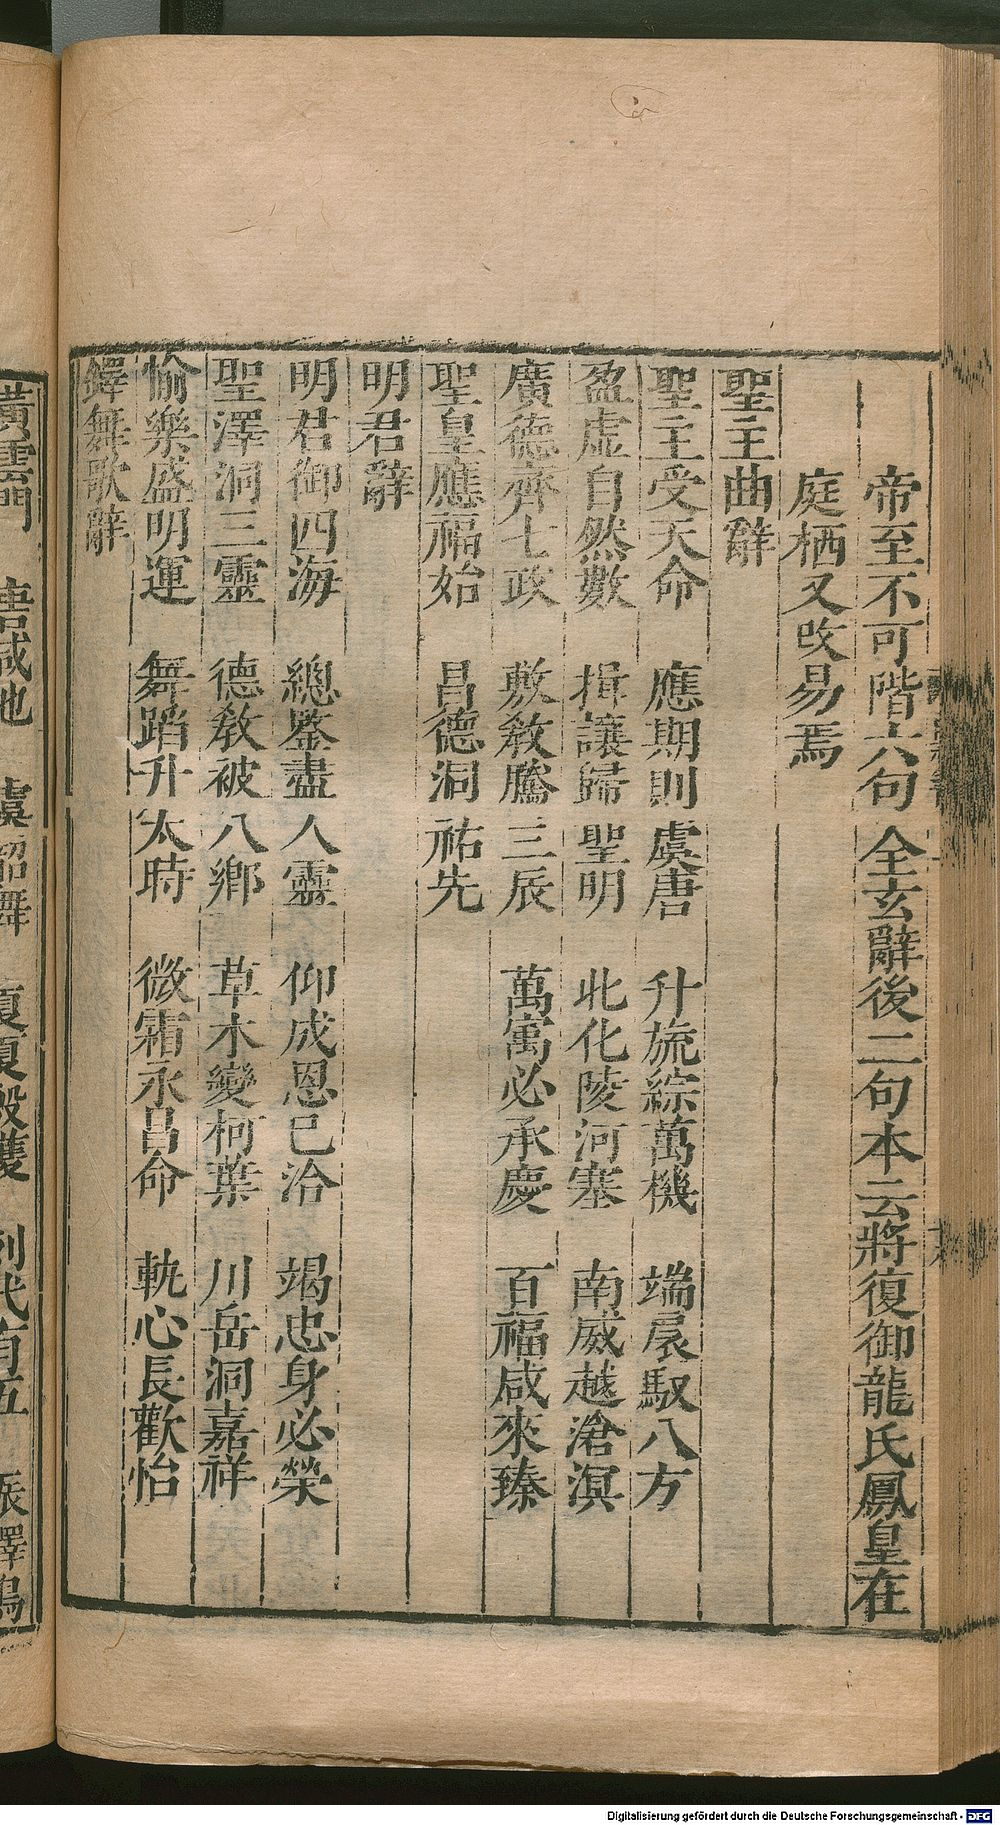 帝至不可階六句全玄辭後二句本云將復御龍氏鳳皇在
庭栖又改易焉
聖主曲辭
聖主受天命 應期則虞唐 升旒綜萬機 端扆馭八方
盈虛自然數 揖讓歸聖明 北化陵河塞 南威越滄溟
廣德齊七政 敷敎騰三辰 萬㝢必承慶 百福咸來臻
聖皇應福始 昌德洞祐先
明君辭
明君御四海 總鑒盡人靈 仰成恩已洽 竭忠身必榮
聖澤洞三靈 德敎被八鄉 草木變柯葉 川岳洞嘉祥
愉樂盛明運 舞蹈升太時 微霜永昌命 軌心長歡怡
鐸舞歌辭
黃雲門 唐咸池 虞韶舞 夏夏殷濩 列代有五 振鐸鳴
Digitalisierung gefördert durch die Deutsche Forschungsgemeinschaft - DFG